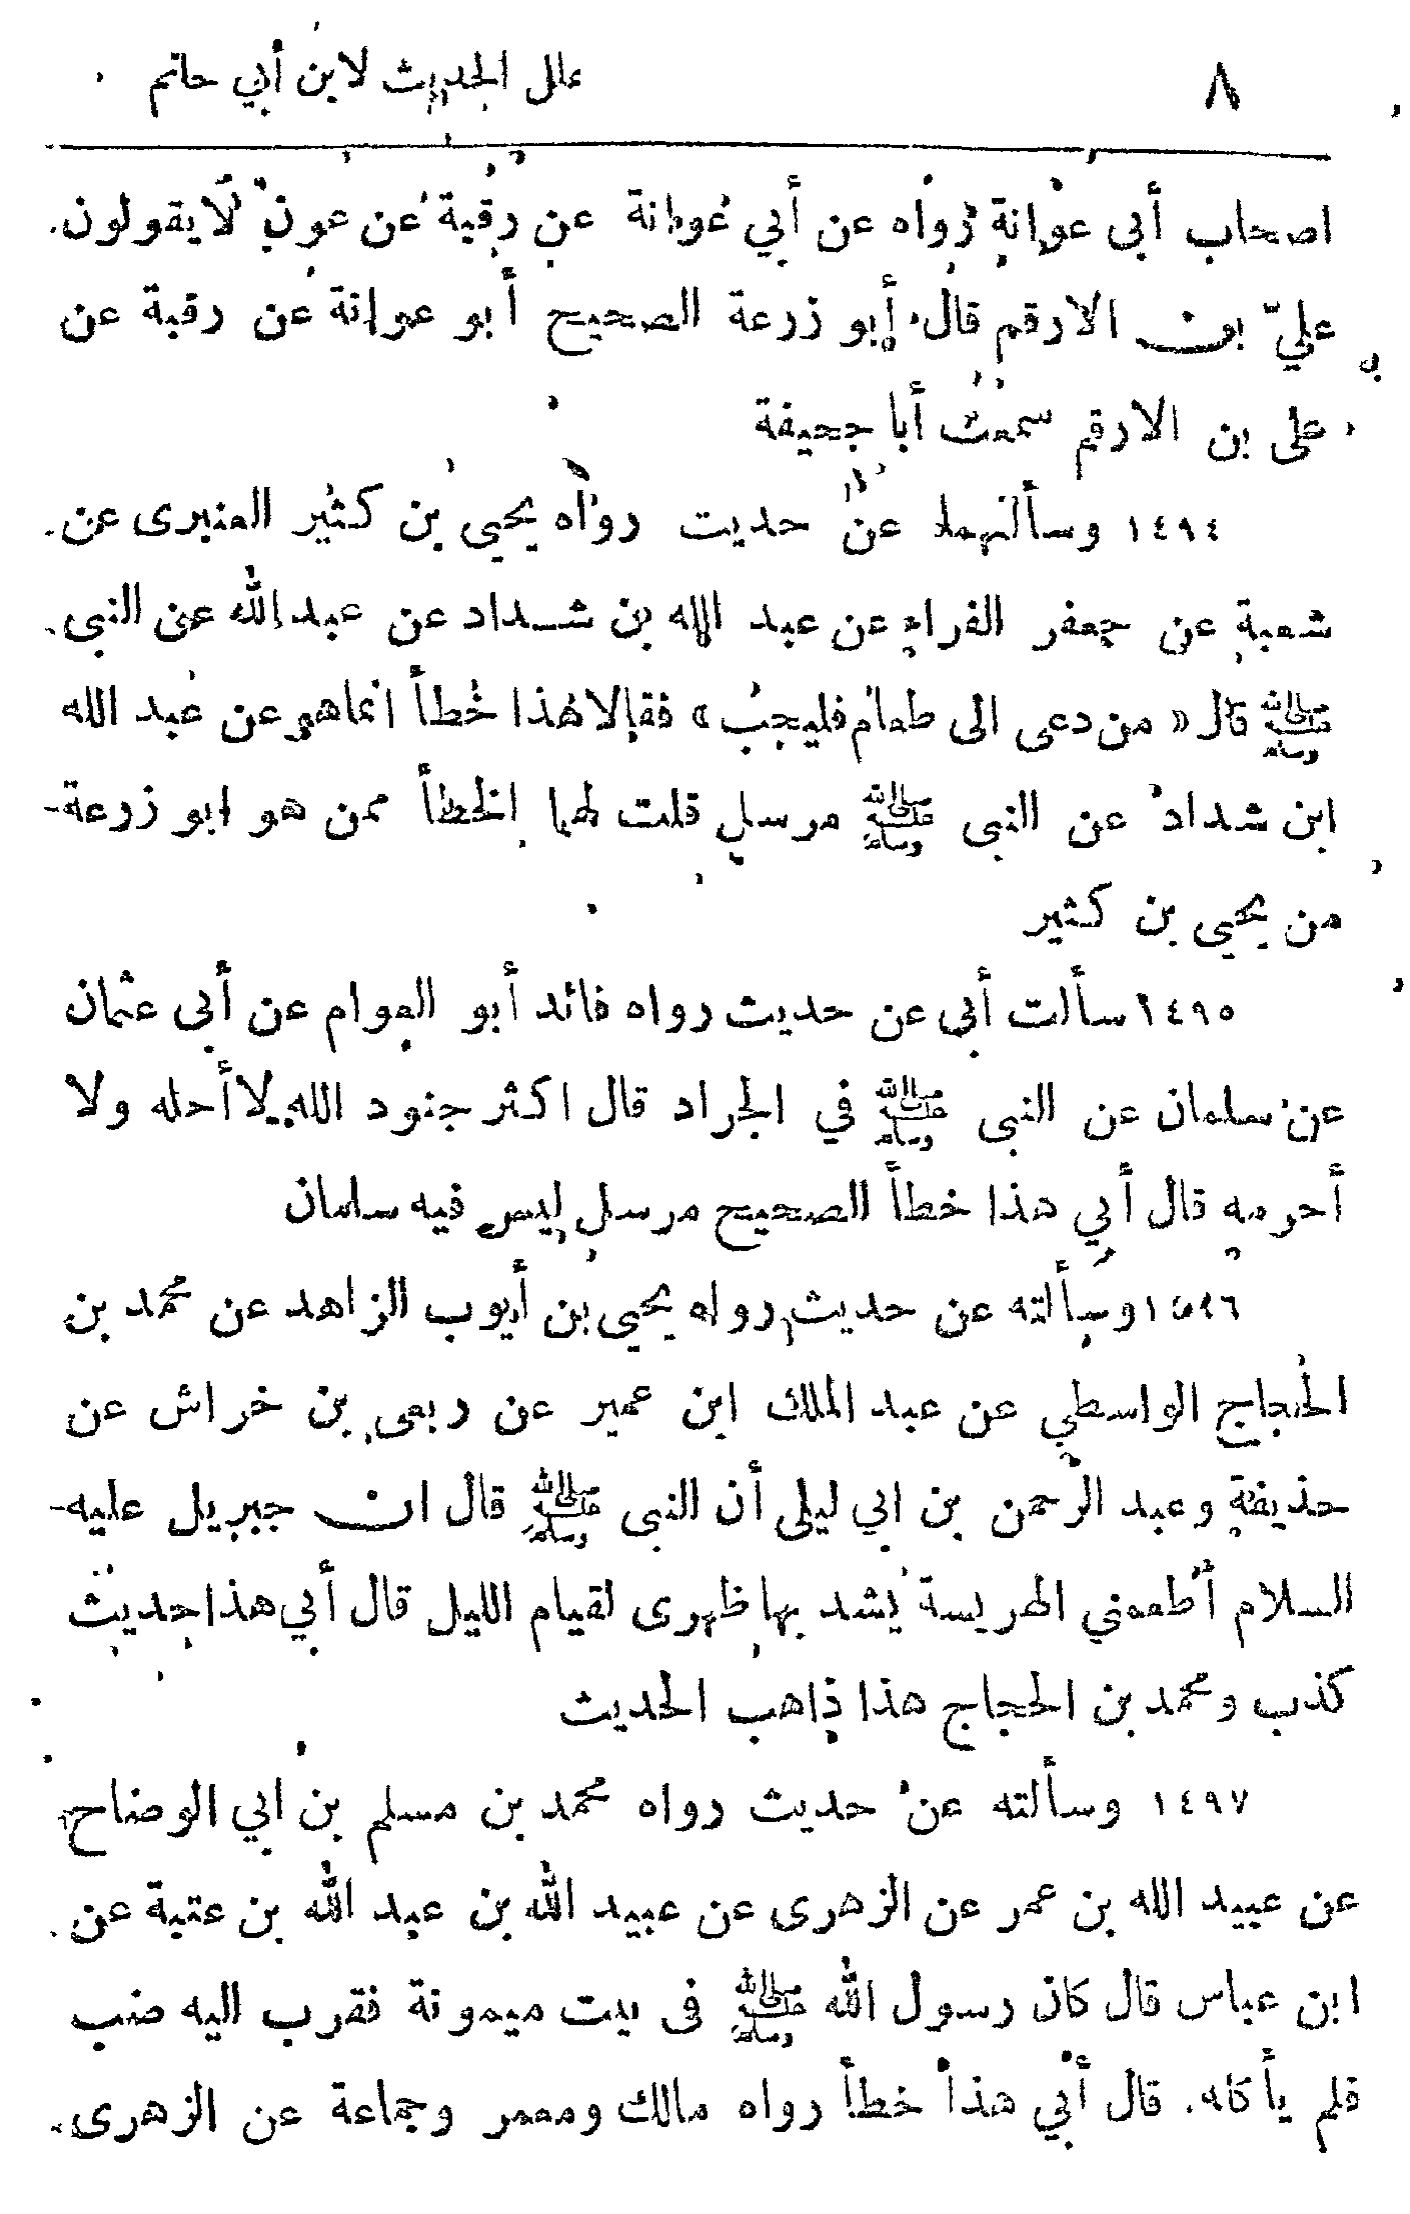 ٨ علل الحديث لابن أبي حاتم
اصحاب أبى عوانة رواه عن أبي عوانة عن رقبة عن عون لا يقولون
عليّ بن الارقم قال أبو زرعة الصحيح أبو عوانة عن رقبة عن
على بن الارقم سمعت أبا جحيفة
١٤٩٤ وسألتهما عن حديث رواه يحيى بن كثير العنبرى عن
شعبة عن جعفر الفراء عن عبد الله بن شداد عن عبد الله عن النبى
ﷺ قال « من دعى الى طعام فليجب » فقالا هذا خطأ انما هو عن عبد الله
ابن شداد عن النبى ﷺ مرسل قلت لهما الخطأ ممن هو ابو زرعة
من يحيى بن كثير
١٤٩٥ سألت أبي عن حديث رواه فائد أبو العوام عن أبى عثمان
عن سلمان عن النبى ﷺ في الجراد قال اكثر جنود الله لا أحله ولا
أحرمه قال أبي هذا خطأ الصحيح مرسل ليس فيه سلمان
١٥٤٦ وسألته عن حديث رواه يحيى بن أيوب الزاهد عن محمد بن
الحجاج الواسطي عن عبد الملك ابن عمير عن ربعى بن خراش عن
حذيفة وعبد الرحمن بن ابي ليلى أن النبى ﷺ قال ان جبريل عليه
السلام أطعمني الهريسة يشد بها ظهرى لقيام الليل قال أبي هذا حديث
كذب ومحمد بن الحجاج هذا ذاهب الحديث
١٤٩٧ وسألته عن حديث رواه محمد بن مسلم بن ابي الوضاح
عن عبيد الله بن عمر عن الزهرى عن عبيد الله بن عبد الله بن عتبة عن
ابن عباس قال كان رسول الله ﷺ فى بيت ميمونة فقرب اليه ضب
فلم يأكله. قال أبي هذا خطأ رواه مالك ومعمر وجماعة عن الزهرى